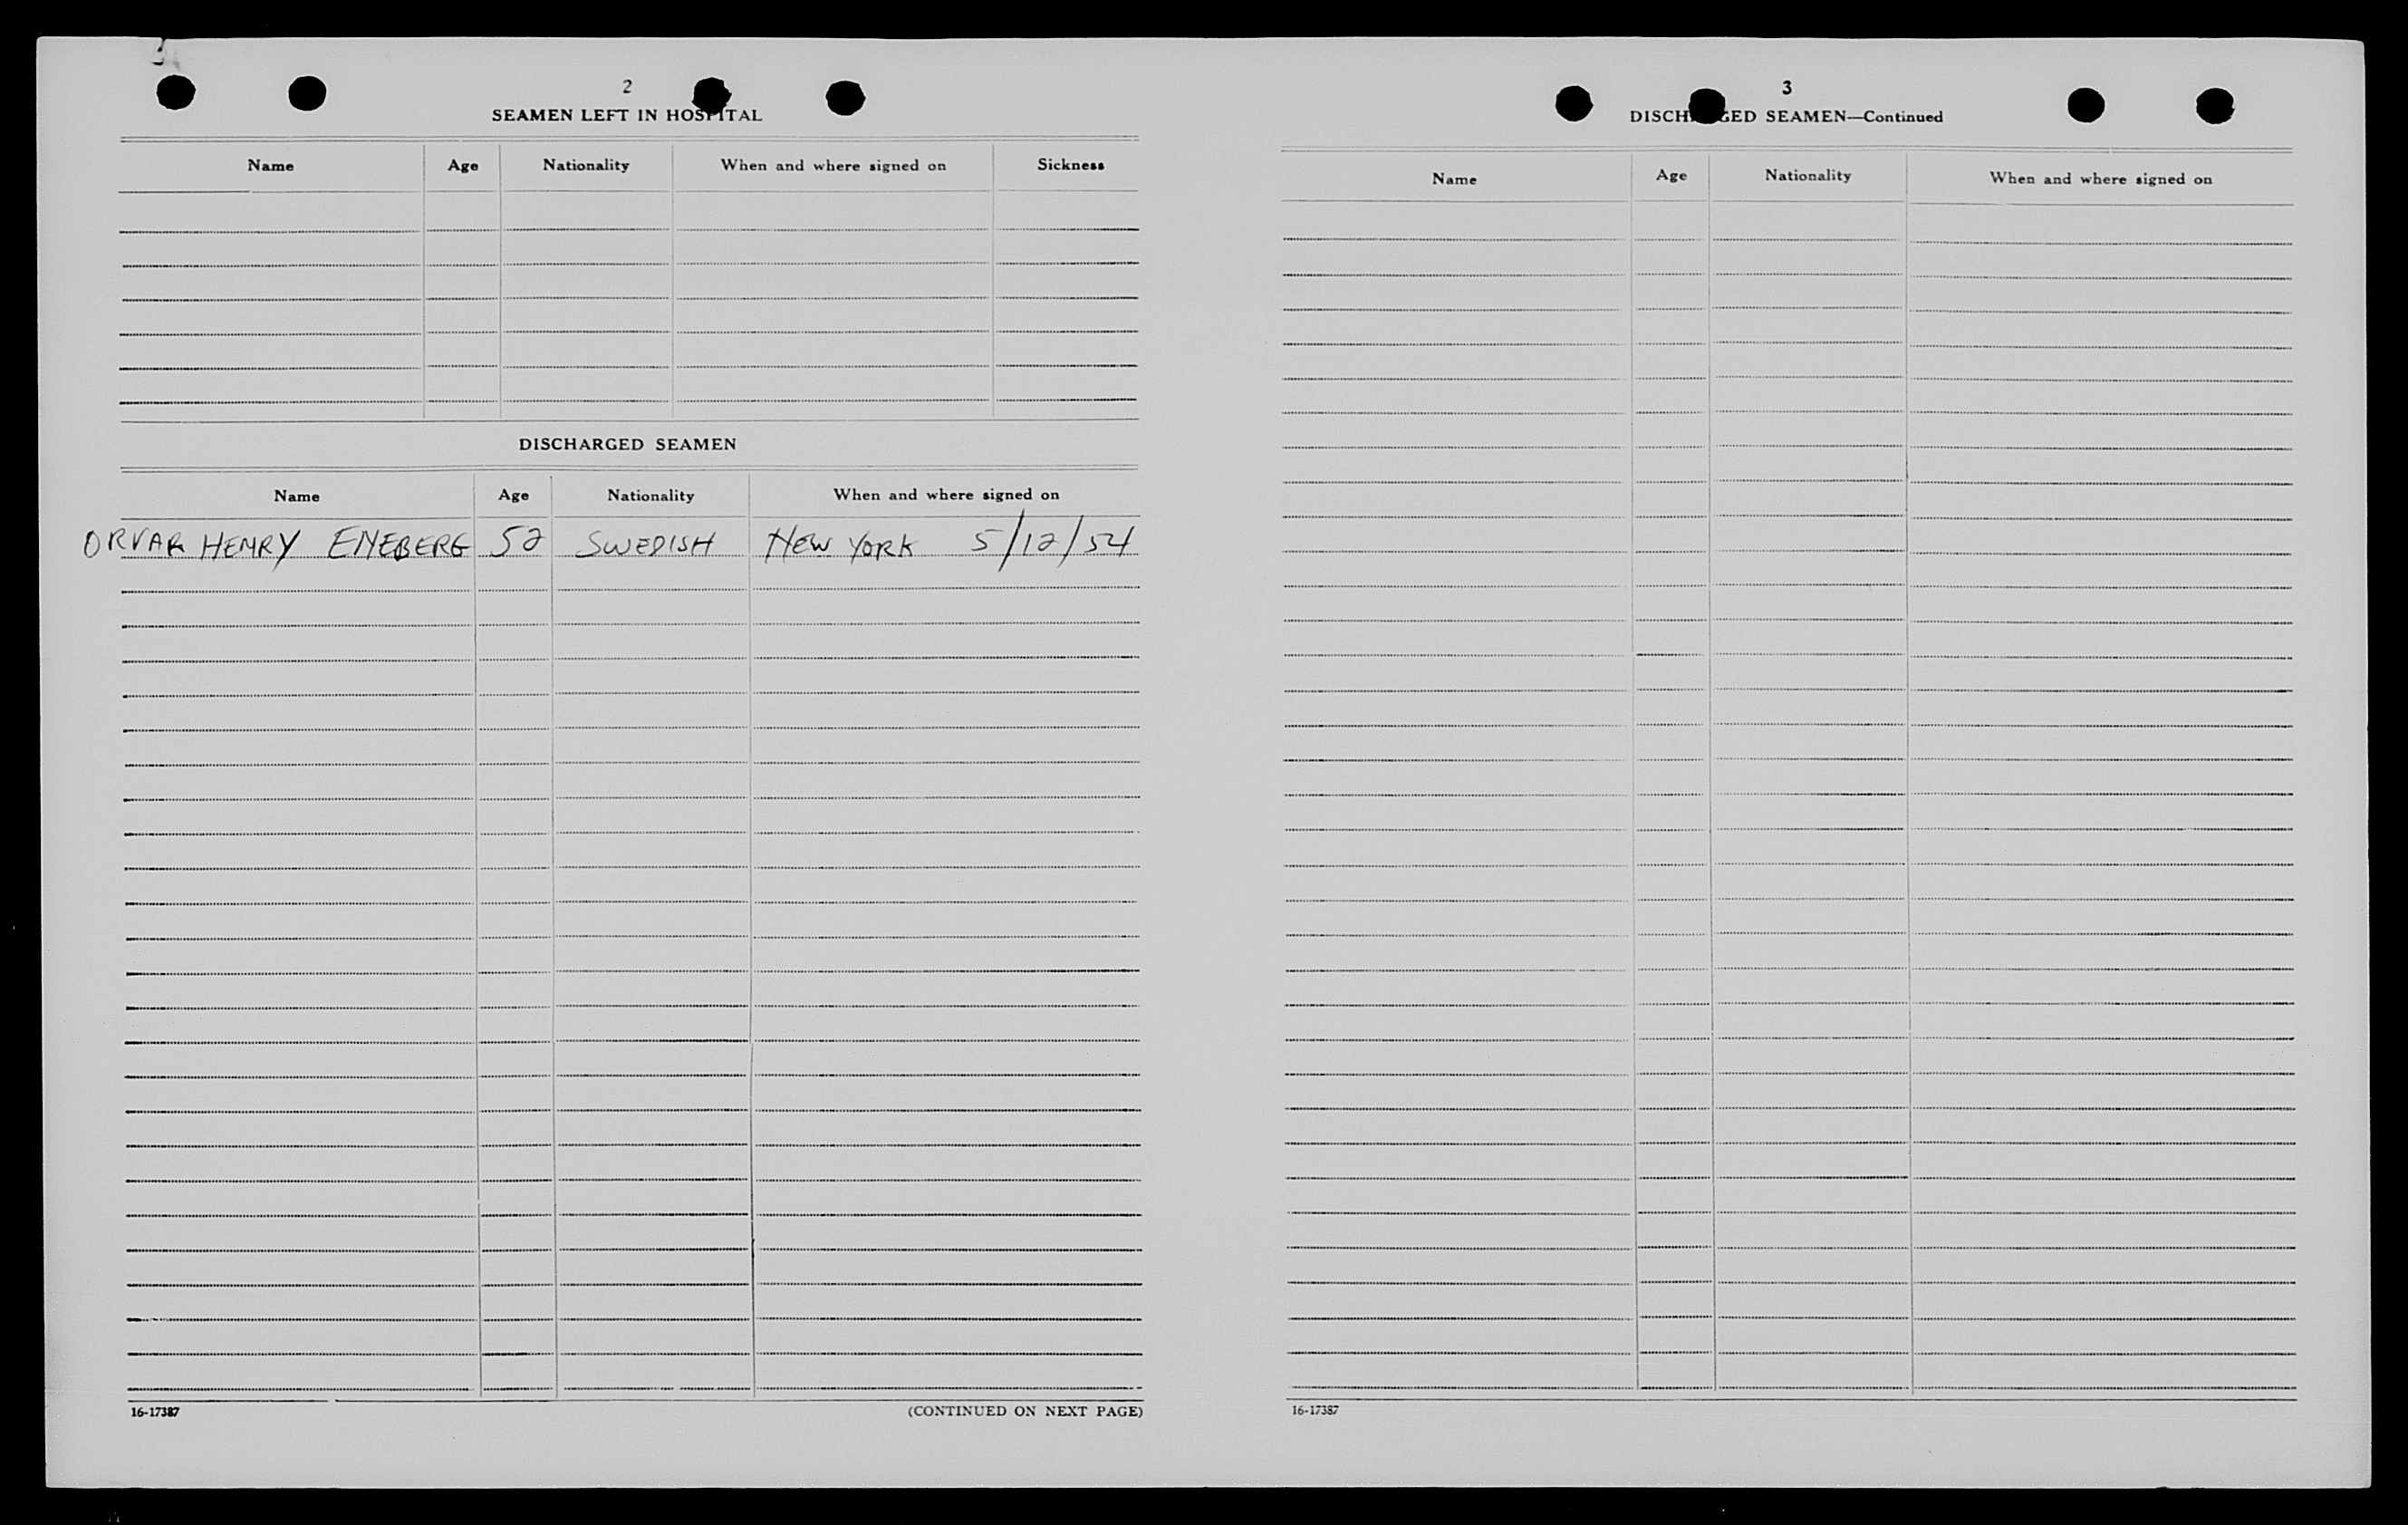 2
SEAMEN LEFT IN HOSPITAL
Name Age Nationality When and where signed on Sickness
DISCHARGED SEAMEN
Name Age Nationality When and where signed on
ORVAR HENRY ENEBERG 52 SWEDISH NEW YORK 5/12/54
16-17387 (CONTINUED ON NEXT PAGE)
3
DISCHARGED SEAMEN—Continued
Name Age Nationality When and where signed on
16-17387